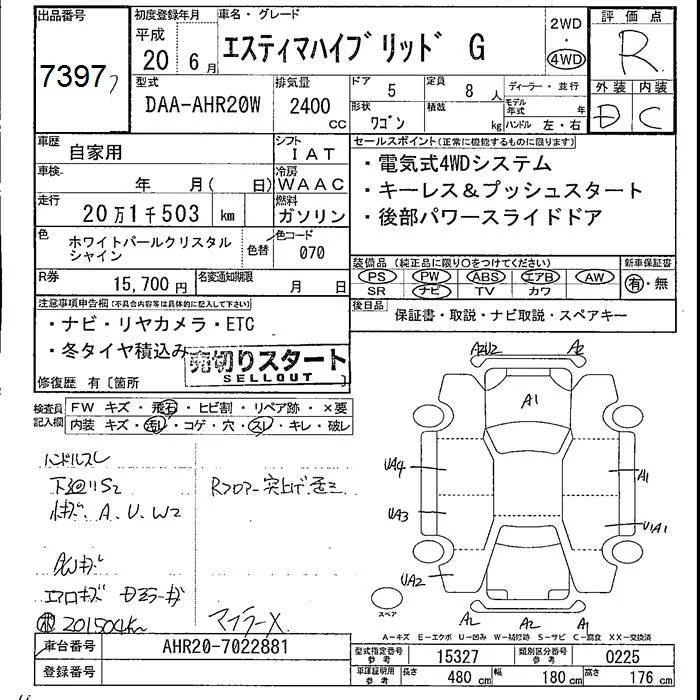 出品番号
7397
初度登録年月
平成
20 6月
車名・グレード
エスティマハイブリッド G
2WD
・
4WD
評価点
R
外装 内装
D C
型式
DAA-AHR20W
排気量
2400
CC
ドア 5
定員 8 人
ディーラー・並行
形状
ワゴン
積載
kg
モデル年式 年
ハンドル 左・右
車歴
自家用
シフト
IAT
車検
年 月( 日)
冷房
WAAC
走行
20万1千503 km
燃料
ガソリン
色
ホワイトパールクリスタル
シャイン
色替
色コード
070
R券
15,700円
名変通知期限
月 日
セールスポイント(正常に機能するものに限ります)
・電気式4WDシステム
・キーレス&プッシュスタート
・後部パワースライドドア
装備品(純正品に限り○をつけてください)
PS PW ABS エアB AW
SR ナビ TV カワ
新車保証書
有・無
後日品
保証書・取説・ナビ取説・スペアキー
注意事項申告欄(不具合内容等は具体的に記入して下さい)
・ナビ・リヤカメラ・ETC
・冬タイヤ積込み
売切りスタート
SELLOUT
修復歴 有〔箇所
検査員
記入欄
FW キズ・飛石・ヒビ割・リペア跡・×要
内装 キズ・汚レ・コゲ・穴・スレ・キレ・破レ
ハンドルスレ
下廻りS2
A、U、W2
Rフロアー突上げ歪ミ
AWキズ
エアロキズ ドアミラーキズ
201504km
マフラーX
A2U2 A2
A1
UA4 A1
UA3 U1A1
UA2
A2 A2 A1
スペア
A−キズ E−エクボ U−凹み W−補修跡 S−サビ C−腐食 XX−交換済
車台番号
AHR20-7022881
登録番号
型式指定番号
参考
15327
類別区分番号
参考
0225
車庫証明用
参考
長さ 480 cm
幅 180 cm
高さ 176 cm